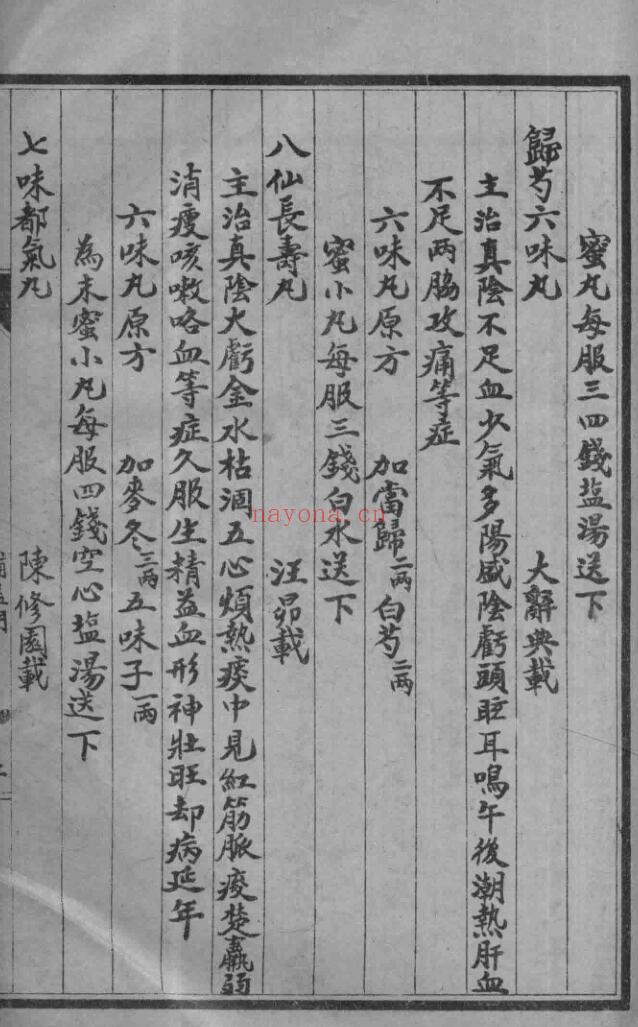 蜜丸每服三四錢塩湯送下
歸芍六味丸　大辭典載
主治真陰不足血少氣多陽盛陰虧頭眩耳鳴午後潮熱肝血
不足两脇攻痛等症
六味丸原方　加當歸二两白芍二两
蜜小丸每服三錢白水送下
八仙長壽丸　汪昂載
主治真陰大虧金水枯涸五心煩熱痰中見紅筋脈痠楚羸弱
消瘦咳嗽咯血等症久服生精益血形神壯旺却病延年
六味丸原方　加麥冬三两五味子一两
為末蜜小丸每服四錢空心塩湯送下
七味都氣丸　陳修園載
nayona.cn